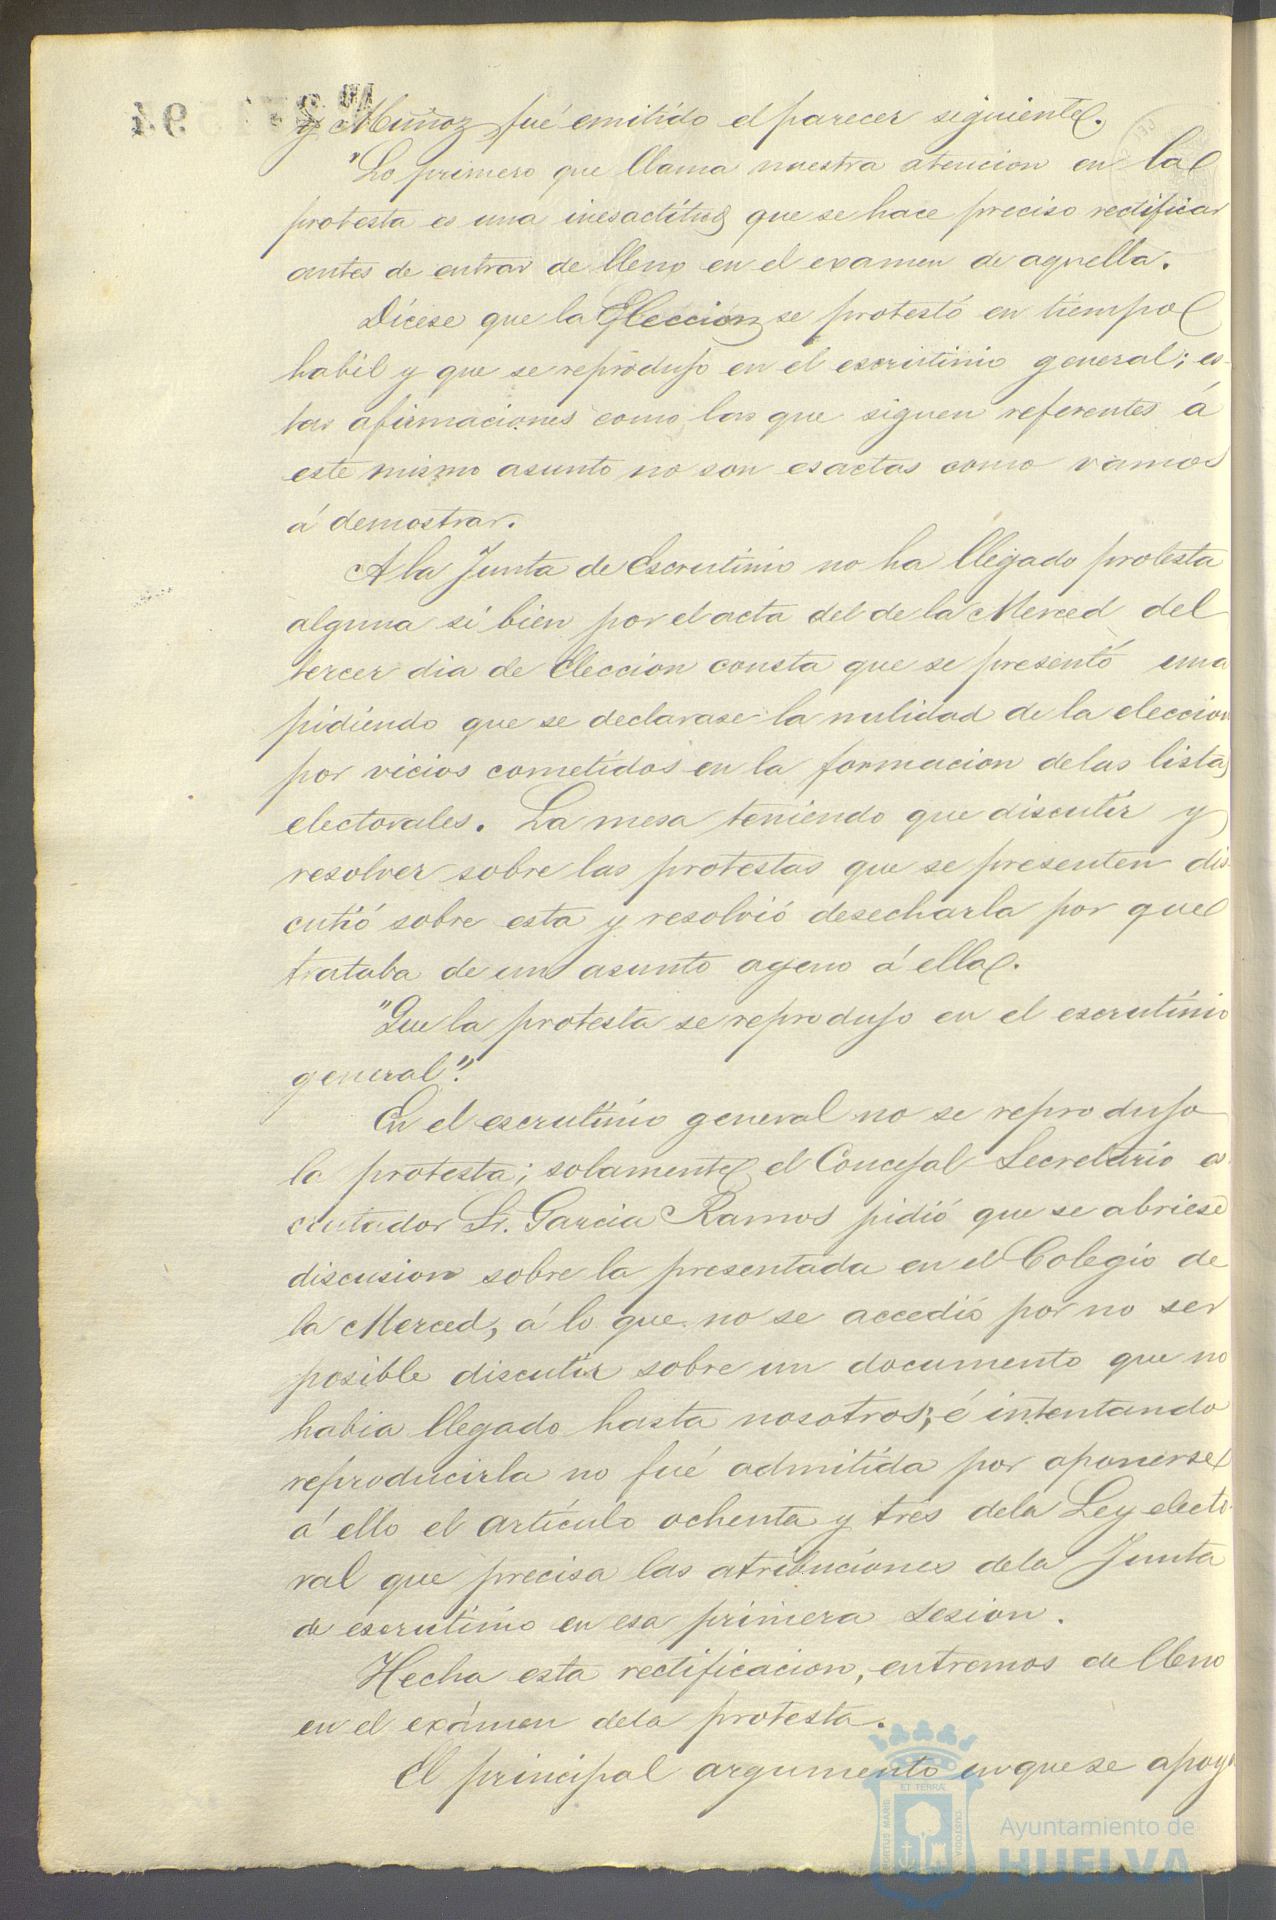 y Muñoz, fué emitido el parecer siguiente.
"Lo primero que llama nuestra atencion en la
protesta es una inesactitud que se hace preciso rectificar
antes de entrar de lleno en el examen de aquella.
Dícese que la Elección se protestó en tiempo
habil y que se reprodujo en el escrutinio general; es-
tas afirmaciones como las que siguen referentes á
este mismo asunto no son esactas como vamos
á demostrar.
A la Junta de Escrutinio no ha llegado protesta
alguna si bien por el acta del de la Merced del
tercer dia de Eleccion consta que se presentó una
pidiendo que se declarase la nulidad de la eleccion
por vicios cometidos en la formacion de las listas
electorales. La mesa teniendo que discutir y
resolver sobre las protestas que se presenten dis-
cutió sobre esta y resolvió desecharla por que
trataba de un asunto ageno á ella.
"Que la protesta se reprodujo en el escrutinio
general".
En el escrutinio general no se reprodujo
la protesta; solamente el Concejal Secretario es-
crutador Sr. Garcia Ramos pidió que se abriese
discusion sobre la presentada en el Colegio de
la Merced, á lo que no se accedió por no ser
posible discutir sobre un documento que no
habia llegado hasta nosotros; é intentando
reproducirla no fué admitida por oponerse
á ello el artículo ochenta y tres dela Ley electo-
ral que precisa las atribuciones dela Junta
de escrutinio en esa primera sesion.
Hecha esta rectificacion, entremos de lleno
en el exámen dela protesta.
El principal argumento en que se apoya
ET TERRÆ
PORTUS MARIS
CUSTODIA
Ayuntamiento de
HUELVA